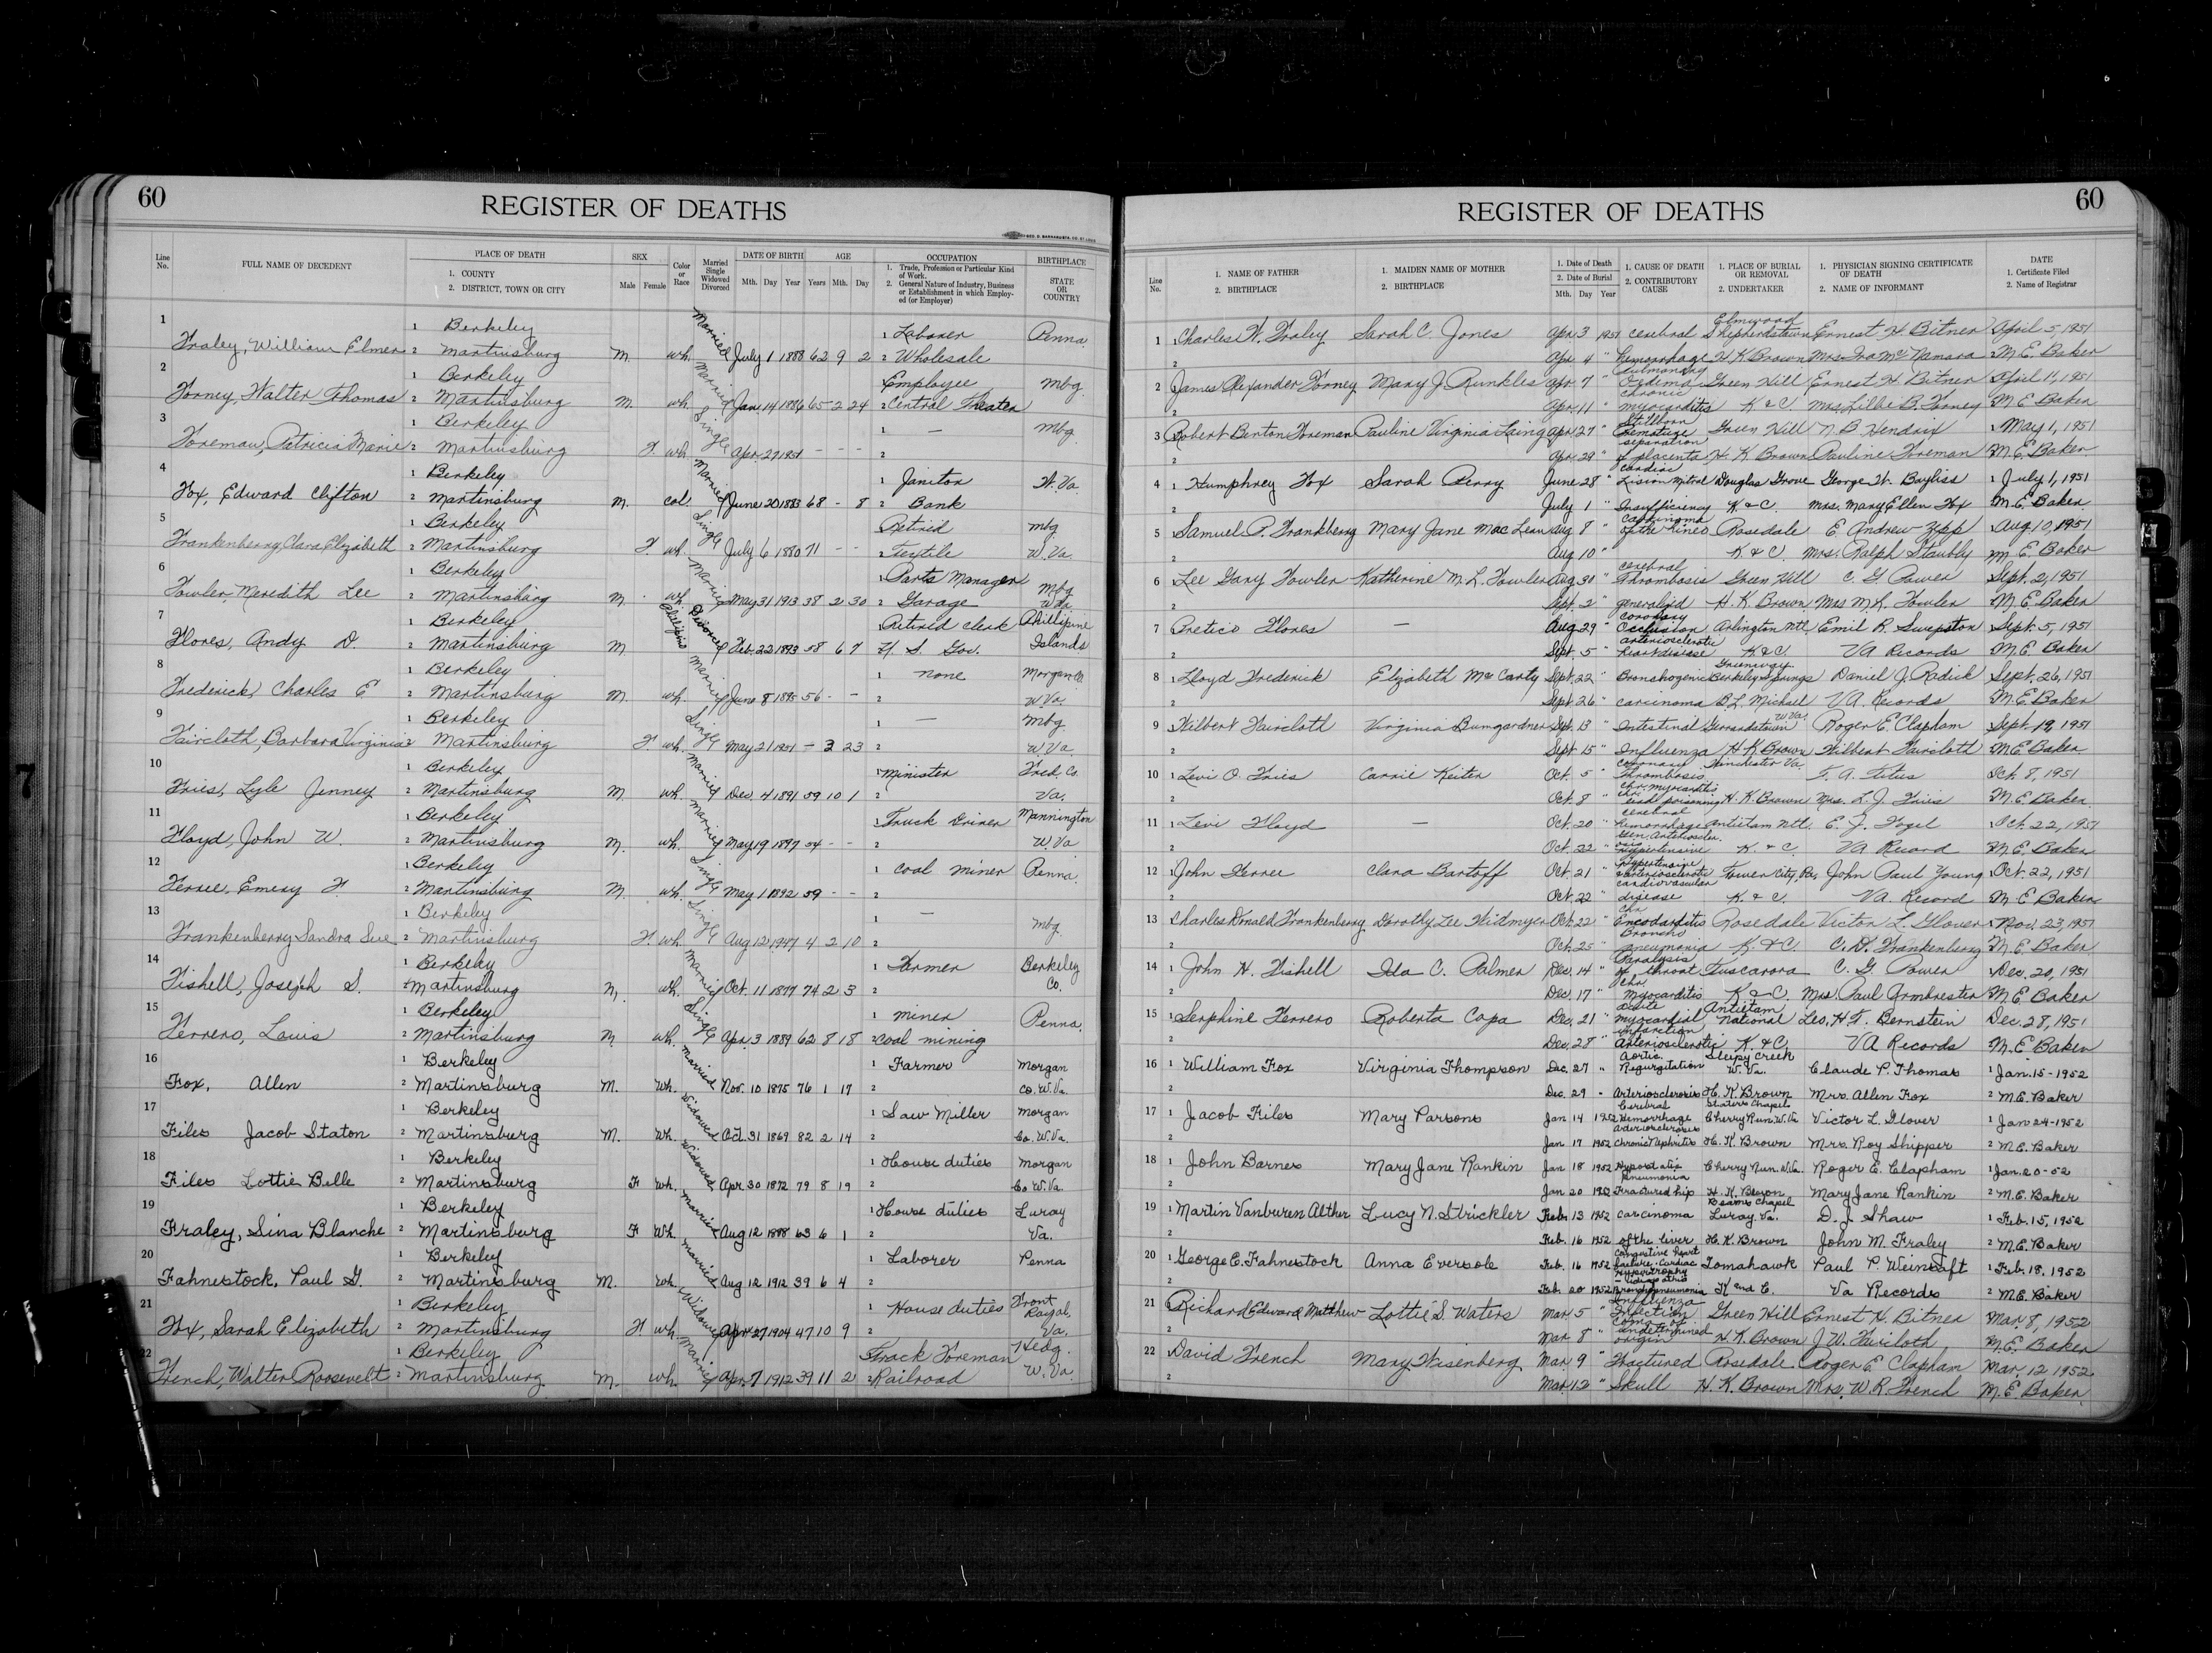 60
REGISTER OF DEATHS
Line No.
FULL NAME OF DECEDENT
PLACE OF DEATH
1. COUNTY
2. DISTRICT, TOWN OR CITY
SEX
Male Female
Color or Race
Married Single Widowed Divorced
DATE OF BIRTH
Mth. Day Year
AGE
Years Mth. Day
OCCUPATION
1. Trade, Profession or Particular Kind of Work.
2. General Nature of Industry, Business or Establishment in which Employed (or Employer)
BIRTHPLACE
STATE OR COUNTRY
1 1 Berkeley 1 Laborer Penna.
Fraley, William Elmer 2 Martinsburg M. wh. Married July 1 1888 62 9 2 2 Wholesale
2 1 Berkeley Employee Mbg.
Forney, Walter Thomas 2 Martinsburg M. wh. Married Jan 14 1886 65 2 24 2 Central Theater
3 1 Berkeley 1 — Mbg.
Foreman, Patricia Marie 2 Martinsburg F. wh. Single Apr 27 1951 - - - 2
4 1 Berkeley 1 Janitor W. Va
Fox, Edward Clifton 2 Martinsburg M. col. Married June 20 1883 68 - 8 2 Bank
5 1 Berkeley Retired mbg.
Frankenberry, Clara Elizabeth 2 Martinsburg F. wh. Single July 6 1880 71 - - 2 Textile W. Va.
6 1 Berkeley 1 Parts Manager Mbg
Fowler, Meredith Lee 2 Martinsburg M. wh. Married May 31 1913 38 2 30 2 Garage W Va
7 1 Berkeley 1 Retired Clerk Phillipine
Flores, Andy D. 2 Martinsburg M. Phillipino Divorced Feb. 22 1893 58 6 7 U. S. Gov. Islands
8 1 Berkeley 1 none Morgan Co.
Frederick, Charles E 2 Martinsburg M. wh. Married June 8 1895 56 - - 2 W. Va.
9 1 Berkeley 1 — mbg.
Faircloth, Barbara Virginia 2 Martinsburg F. wh. Single May 21 1951 - 3 23 2 W Va
10 1 Berkeley 1 Minister Fred. Co.
Fries, Lyle Jenney 2 Martinsburg M. wh. Married Dec. 4 1891 59 10 1 2 Va.
11 1 Berkeley 1 Truck Driver Mannington
Floyd, John W. 2 Martinsburg M. wh. Married May 19 1897 54 - - 2 W. Va
12 1 Berkeley 1 coal miner Penna.
Ferree, Emery F. 2 Martinsburg M. wh. Single May 1 1892 59 - - 2
13 1 Berkeley 1 — mbg.
Frankenberry Sandra Sue 2 Martinsburg F. wh. Single Aug 12 1947 4 2 10 2
14 1 Berkeley 1 Farmer Berkeley
Fishell, Joseph S. 2 Martinsburg M. wh. Married Oct. 11 1877 74 2 3 2 Co.
15 1 Berkeley 1 miner Penna.
Ferrero, Louis 2 Martinsburg M. wh. Single Apr. 3 1889 62 8 18 2 coal mining
16 1 Berkeley 1 Farmer Morgan
Fox, Allen 2 Martinsburg M. Wh. Married Nov. 10 1875 76 1 17 2 Co. W. Va.
17 1 Berkeley 1 Saw Miller Morgan
Files Jacob Staton 2 Martinsburg M. Wh. Widowed Oct. 31 1869 82 2 14 2 Co. W. Va.
18 1 Berkeley 1 House duties Morgan
Files Lottie Belle 2 Martinsburg F Wh. Widowed Apr. 30 1872 79 8 19 2 Co W. Va.
19 1 Berkeley 1 House duties Luray
Fraley, Sina Blanche 2 Martinsburg F Wh. Married Aug 12 1888 63 6 1 2 Va.
20 1 Berkeley 1 Laborer Penna
Fahnestock, Paul G. 2 Martinsburg M. Wh. Married Aug 12 1912 39 6 4 2
21 1 Berkeley 1 House duties Front Royal,
Fox, Sarah Elizabeth 2 Martinsburg F. wh. Widowed Apr 27 1904 47 10 9 2 Va.
22 1 Berkeley Track Foreman Hedg.
French, Walter Roosevelt 2 Martinsburg M. wh. Married Apr. 7 1912 39 11 2 2 Railroad W. Va.
REGISTER OF DEATHS
60
Line No.
1. NAME OF FATHER
2. BIRTHPLACE
1. MAIDEN NAME OF MOTHER
2. BIRTHPLACE
1. Date of Death
2. Date of Burial
Mth. Day Year
1. CAUSE OF DEATH
2. CONTRIBUTORY CAUSE
1. PLACE OF BURIAL OR REMOVAL
2. UNDERTAKER
1. PHYSICIAN SIGNING CERTIFICATE OF DEATH
2. NAME OF INFORMANT
DATE
1. Certificate Filed
2. Name of Registrar
1 1 Charles W. Fraley Sarah C. Jones Apr. 3 1951 cerebral Elmwood Shepherdstown Ernest H Bitner April 5, 1951
2 Apr. 4 " hemorrhage H K Brown Mrs Ira McNamara M. E. Baker
2 1 James Alexander Forney Mary J. Runkles Apr. 7 " Pulmonary Oedema Green Hill Ernest H. Bitner April 11, 1951
2 Apr. 11 " chronic myocarditis K & C. Mrs Lillie B. Forney M. E Baker
3 1 Robert Benton Foreman Pauline Virginia Laing Apr. 27 " Stillborn Premature separation Green Hill N. B Hendrix 1 May 1, 1951
2 Apr. 29 " of placenta H. K Brown Pauline Foreman M. E. Baker
4 1 Humphrey Fox Sarah Perry June 28 " Cardiac Lision Mitral Douglas Grove George W. Bayliss 1 July 1, 1951
July 1 " Insufficiency K. & C. Mrs. Mary Ellen Fox M. E. Baker
5 1 Samuel P. Frankberry Mary Jane MacLean Aug 8 " Carcinoma of the Rosedale E. Andrew Zepp Aug 10, 1951
2 Aug. 10 " K & C Mrs. Ralph Staubly M. E. Baker
6 1 Lee Gary Fowler Katherine M. L. Fowler Aug. 30 " cerebral Thrombosis Green Hill C. G Power Sept. 2, 1951
2 Sept. 2 " generalized H. K. Brown Mrs M. K. Fowler M. E. Baker
7 1 Pretico Flores — Aug 29 " coronary Occlusion Arlington Ntl. Emil R. Swepston Sept. 5, 1951
2 Sept. 5 " arteriosclerotic heart disease K & C. VA Records M. E. Baker
8 1 Lloyd Frederick Elizabeth McCarty Sept. 22 " Bronchogenic Greenway Berkeley Springs Daniel J. Radick Sept. 26, 1951
2 Sept. 26 " carcinoma B. L. Michael VA. Records M. E. Baker
9 1 Wilbert Faircloth Virginia Bumgardner Sept. 13 " Intestinal Gerrardstown W Va. Roger E. Clapham Sept. 19, 1951
2 Sept. 15 " Influenza H. K Brown Wilbert Faircloth M. E. Baker
10 1 Levi O. Fries Carrie Keiter Oct. 5 " coronary Thrombosis Winchester Va. T. A. Titus Oct. 8, 1951
2 Oct. 8 " chr. myocarditis chr. lead poisoning H. K. Brown Mrs. L. J. Fries M. E. Baker
11 1 Levi Floyd — Oct. 20 " cerebral hemorrhage Antietam Ntl. E. J. Fogel Oct. 22, 1951
2 Oct. 22 " Gen. Arteriosclerosis Hypertensive K. & C. VA Record M. E. Baker
12 1 John Ferree Clara Bartoff Oct. 21 " Hypertensive arteriosclerotic Tower City, Pa. John Paul Young 1 Oct. 22, 1951
2 Oct. 22 " cardiovascular disease K. & C. VA. Record M. E. Baker
13 Charles Donald Frankenberry Dorothy Lee Widmyer Oct. 22 " Chr. Encodarditis Rosedale Victor L. Glover 1 Nov. 23, 1951
2 Oct. 25 " Broncho pneumonia K. & C. C. D. Frankenberry M. E. Baker
14 1 John H. Fishell Ida C. Palmer Dec. 14 " Paralysis of throat Tuscarora C. G. Power Dec. 20, 1951
2 Dec. 17 " Chr. Myocarditis K & C. Mrs Paul Armbrester M. E Baker
15 1 Serphine Ferrero Roberta Copa Dec. 21 " acute myocardial infarction Antietam National Leo, H. F. Bernstein Dec. 28, 1951
2 Dec. 28 " Arteriosclerotic K. & C. VA Records M. E Baker
16 1 William Fox Virginia Thompson Dec. 27 " Aortic Regurgitation Sleepy Creek W. Va. Claude P. Thomas 1 Jan. 15 - 1952
2 Dec. 29 " Arteriosclerosis H. K. Brown Mrs. Allen Fox 2 M. E. Baker
17 1 Jacob Files Mary Parsons Jan 14 1952 Cerebral Hemorrhage Slaters Chapel Cherry Run. W. Va Victor L. Glover 1 Jan 24-1952
2 Jan 17 1952 arteriosclerosis Chronic Nephritis H. K. Brown Mrs. Roy Shipper 2 M. E. Baker
18 1 John Barnes Mary Jane Rankin Jan 18 1952 Hypostatic Pneumonia Cherry Run. W. Va. Roger E. Clapham 1 Jan. 20-52
2 Jan 20 1952 Fractured hip H. K. Brown Mary Jane Rankin 2 M. E. Baker
19 1 Martin Vanburen Alther Lucy N. Strickler Feb. 13 1952 Carcinoma Beams Chapel Luray, Va. D. J. Shaw 1 Feb. 15, 1952
2 Feb. 16 1952 of the liver H. K. Brown John M. Fraley 2 M. E. Baker
20 1 George E. Fahnestock Anna Eversole Feb. 16 1952 Congestive heart failure, Cardiac Hypertrophy Tomahawk Paul P. Weinsaft 1 Feb. 18, 1952
2 Feb. 20 1952 - Idiopathic Bronchopneumonia K and C. Va Records 2 M. E. Baker
21 1 Richard Edward Matthew Lottie S. Waters Mar. 5 " Influenza Infection Green Hill Ernest H. Bitner Mar. 8, 1952
2 Mar. 8 " Coma of undetermined origin H. K. Brown J. W. Faircloth M. E. Baker
22 1 David French Mary Wisenberg Mar. 9 " Fractured Rosedale Roger E Clapham Mar. 12 1952
2 Mar. 12 " Skull H. K. Brown Mrs. W. R. French M. E. Baker
7
H